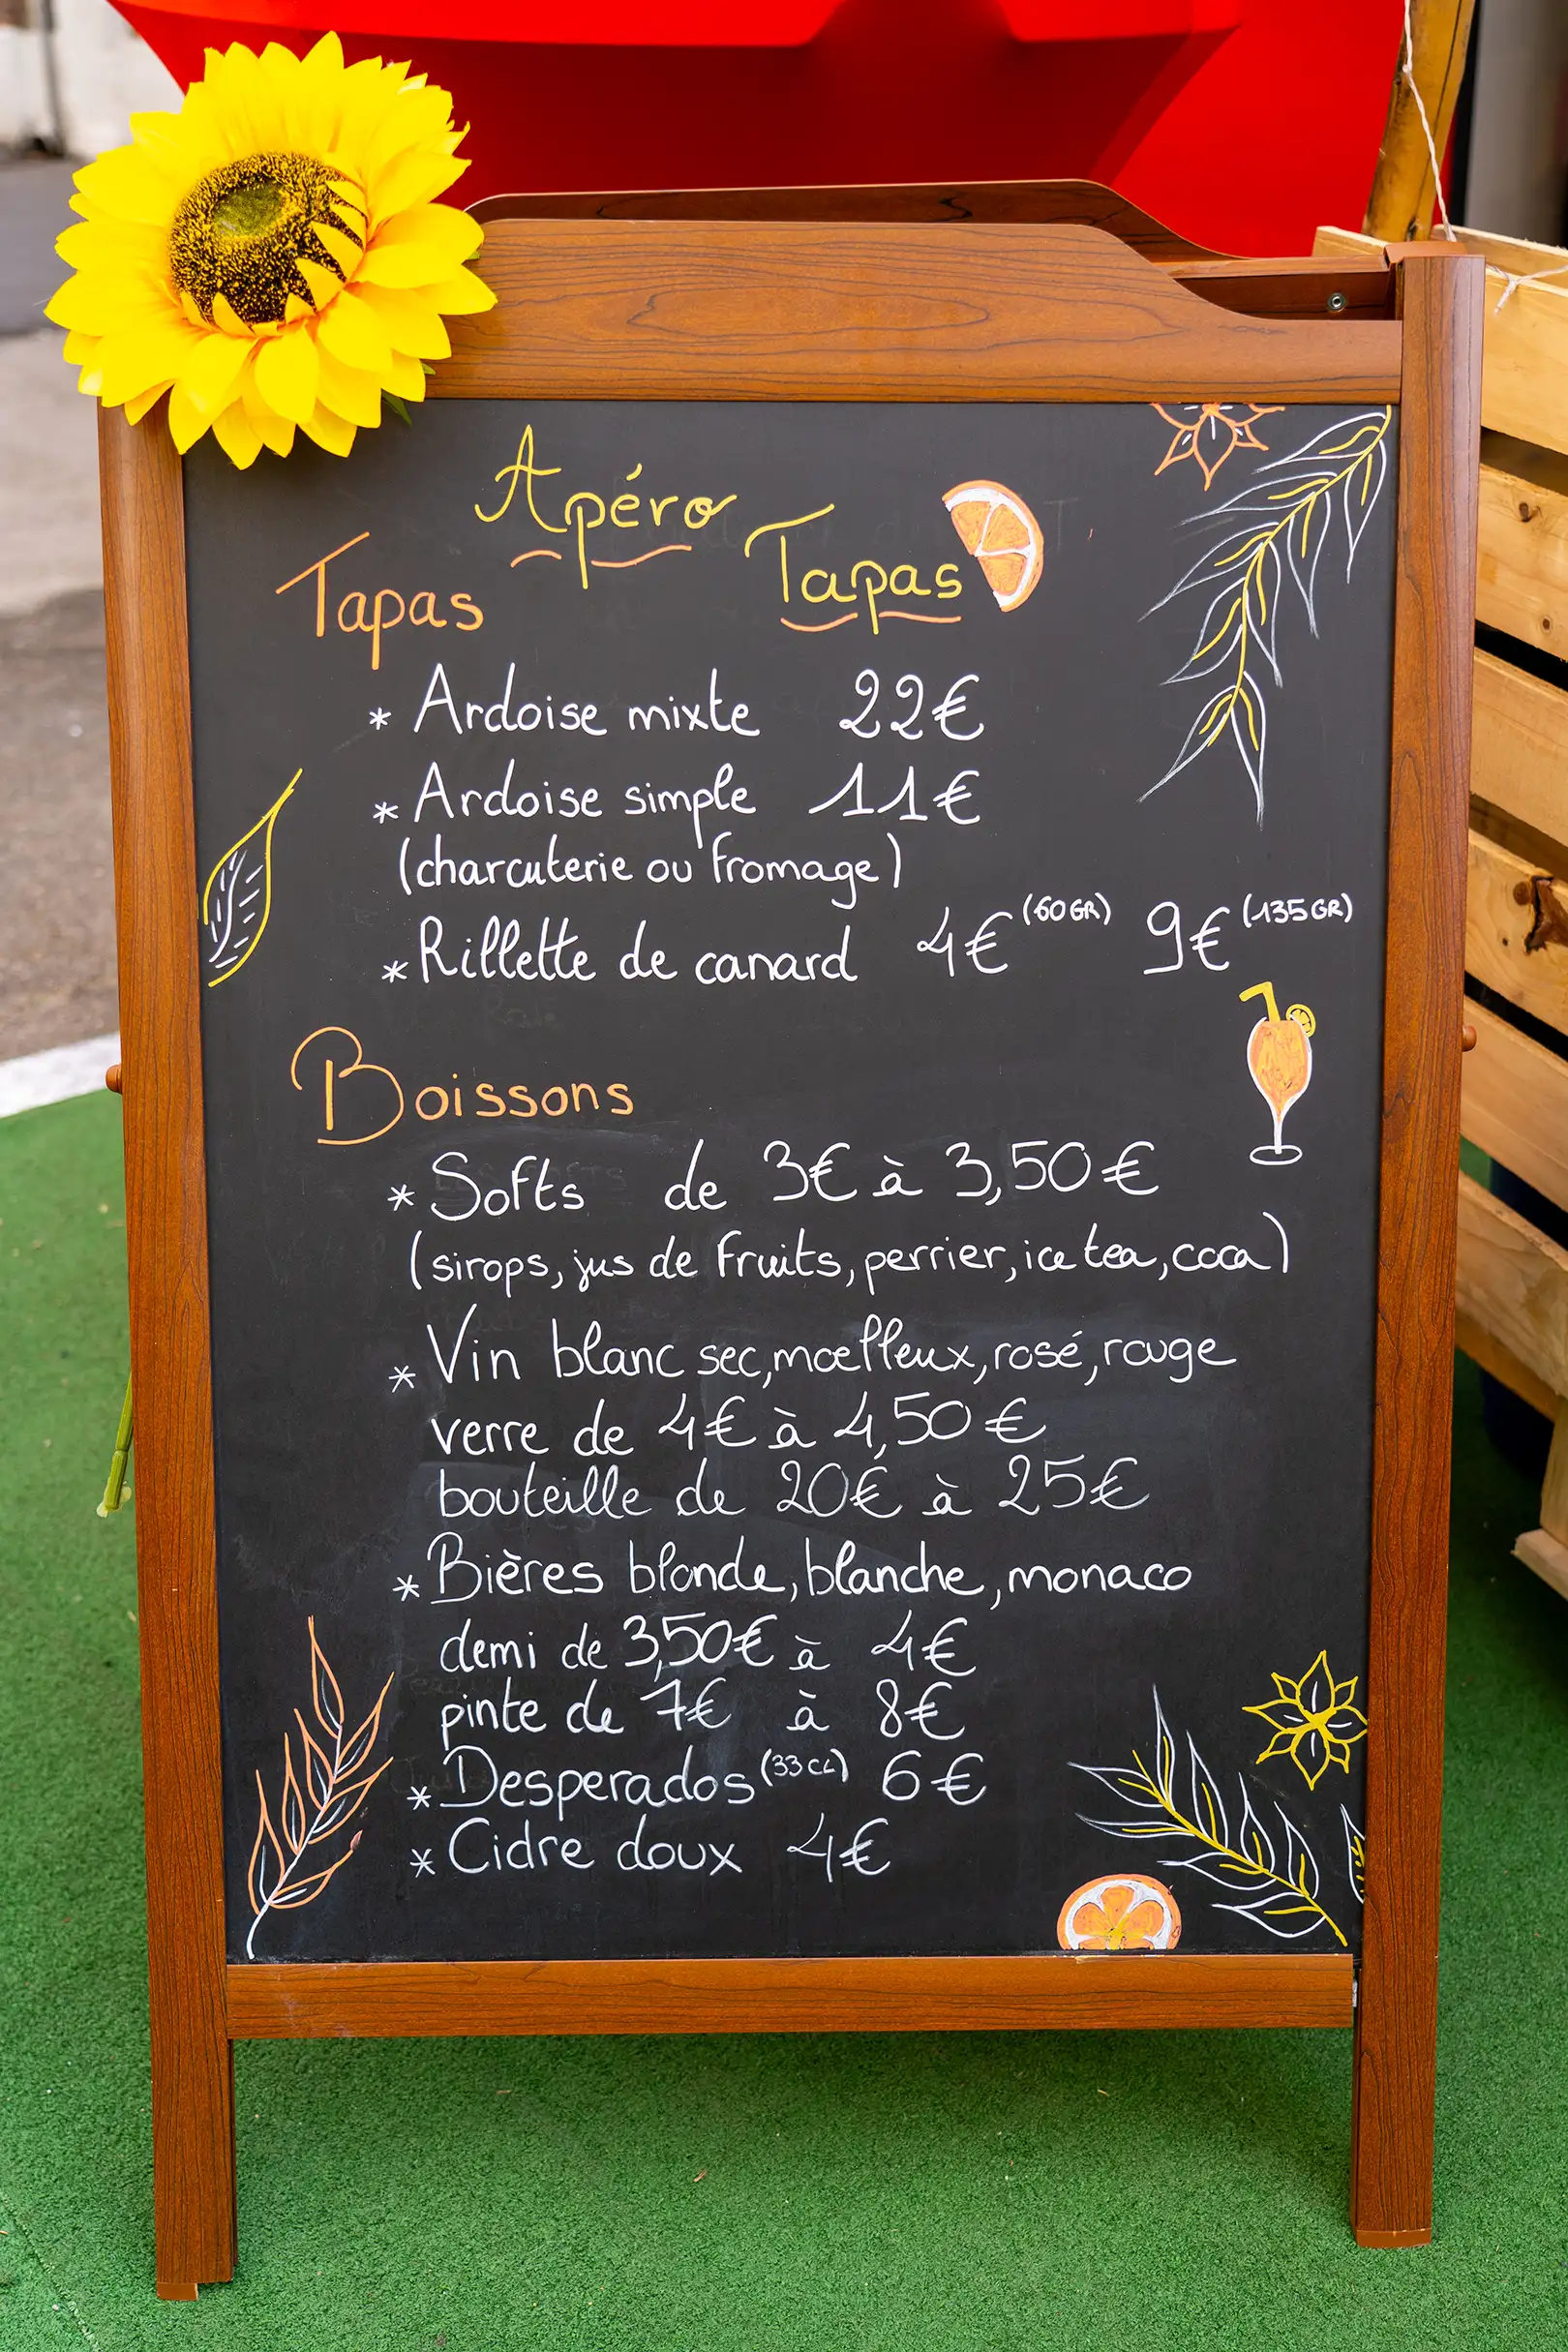 Apéro
Tapas
Tapas
* Ardoise mixte 22€
* Ardoise simple 11€
(charcuterie ou fromage)
* Rillette de canard 4€ (60GR) 9€ (135GR)
Boissons
* Softs de 3€ à 3,50€
(sirops, jus de fruits, perrier, ice tea, coca)
* Vin blanc sec, mœlleux, rosé, rouge
verre de 4€ à 4,50€
bouteille de 20€ à 25€
* Bières blonde, blanche, monaco
demi de 3,50€ à 4€
pinte de 7€ à 8€
* Desperados (33CL) 6€
* Cidre doux 4€